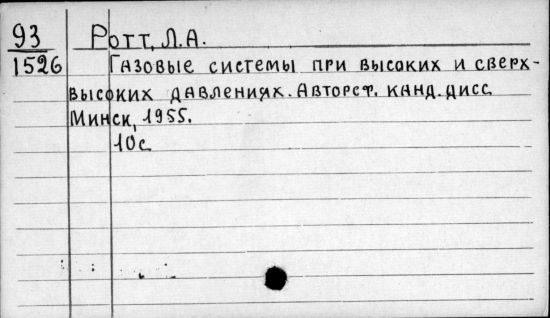 93 Ротт, Л.А.
1526 Газовые системы при высоких и сверх-
высоких давлениях. Автореф. канд. дисс.
Минск, 1955.
10с.